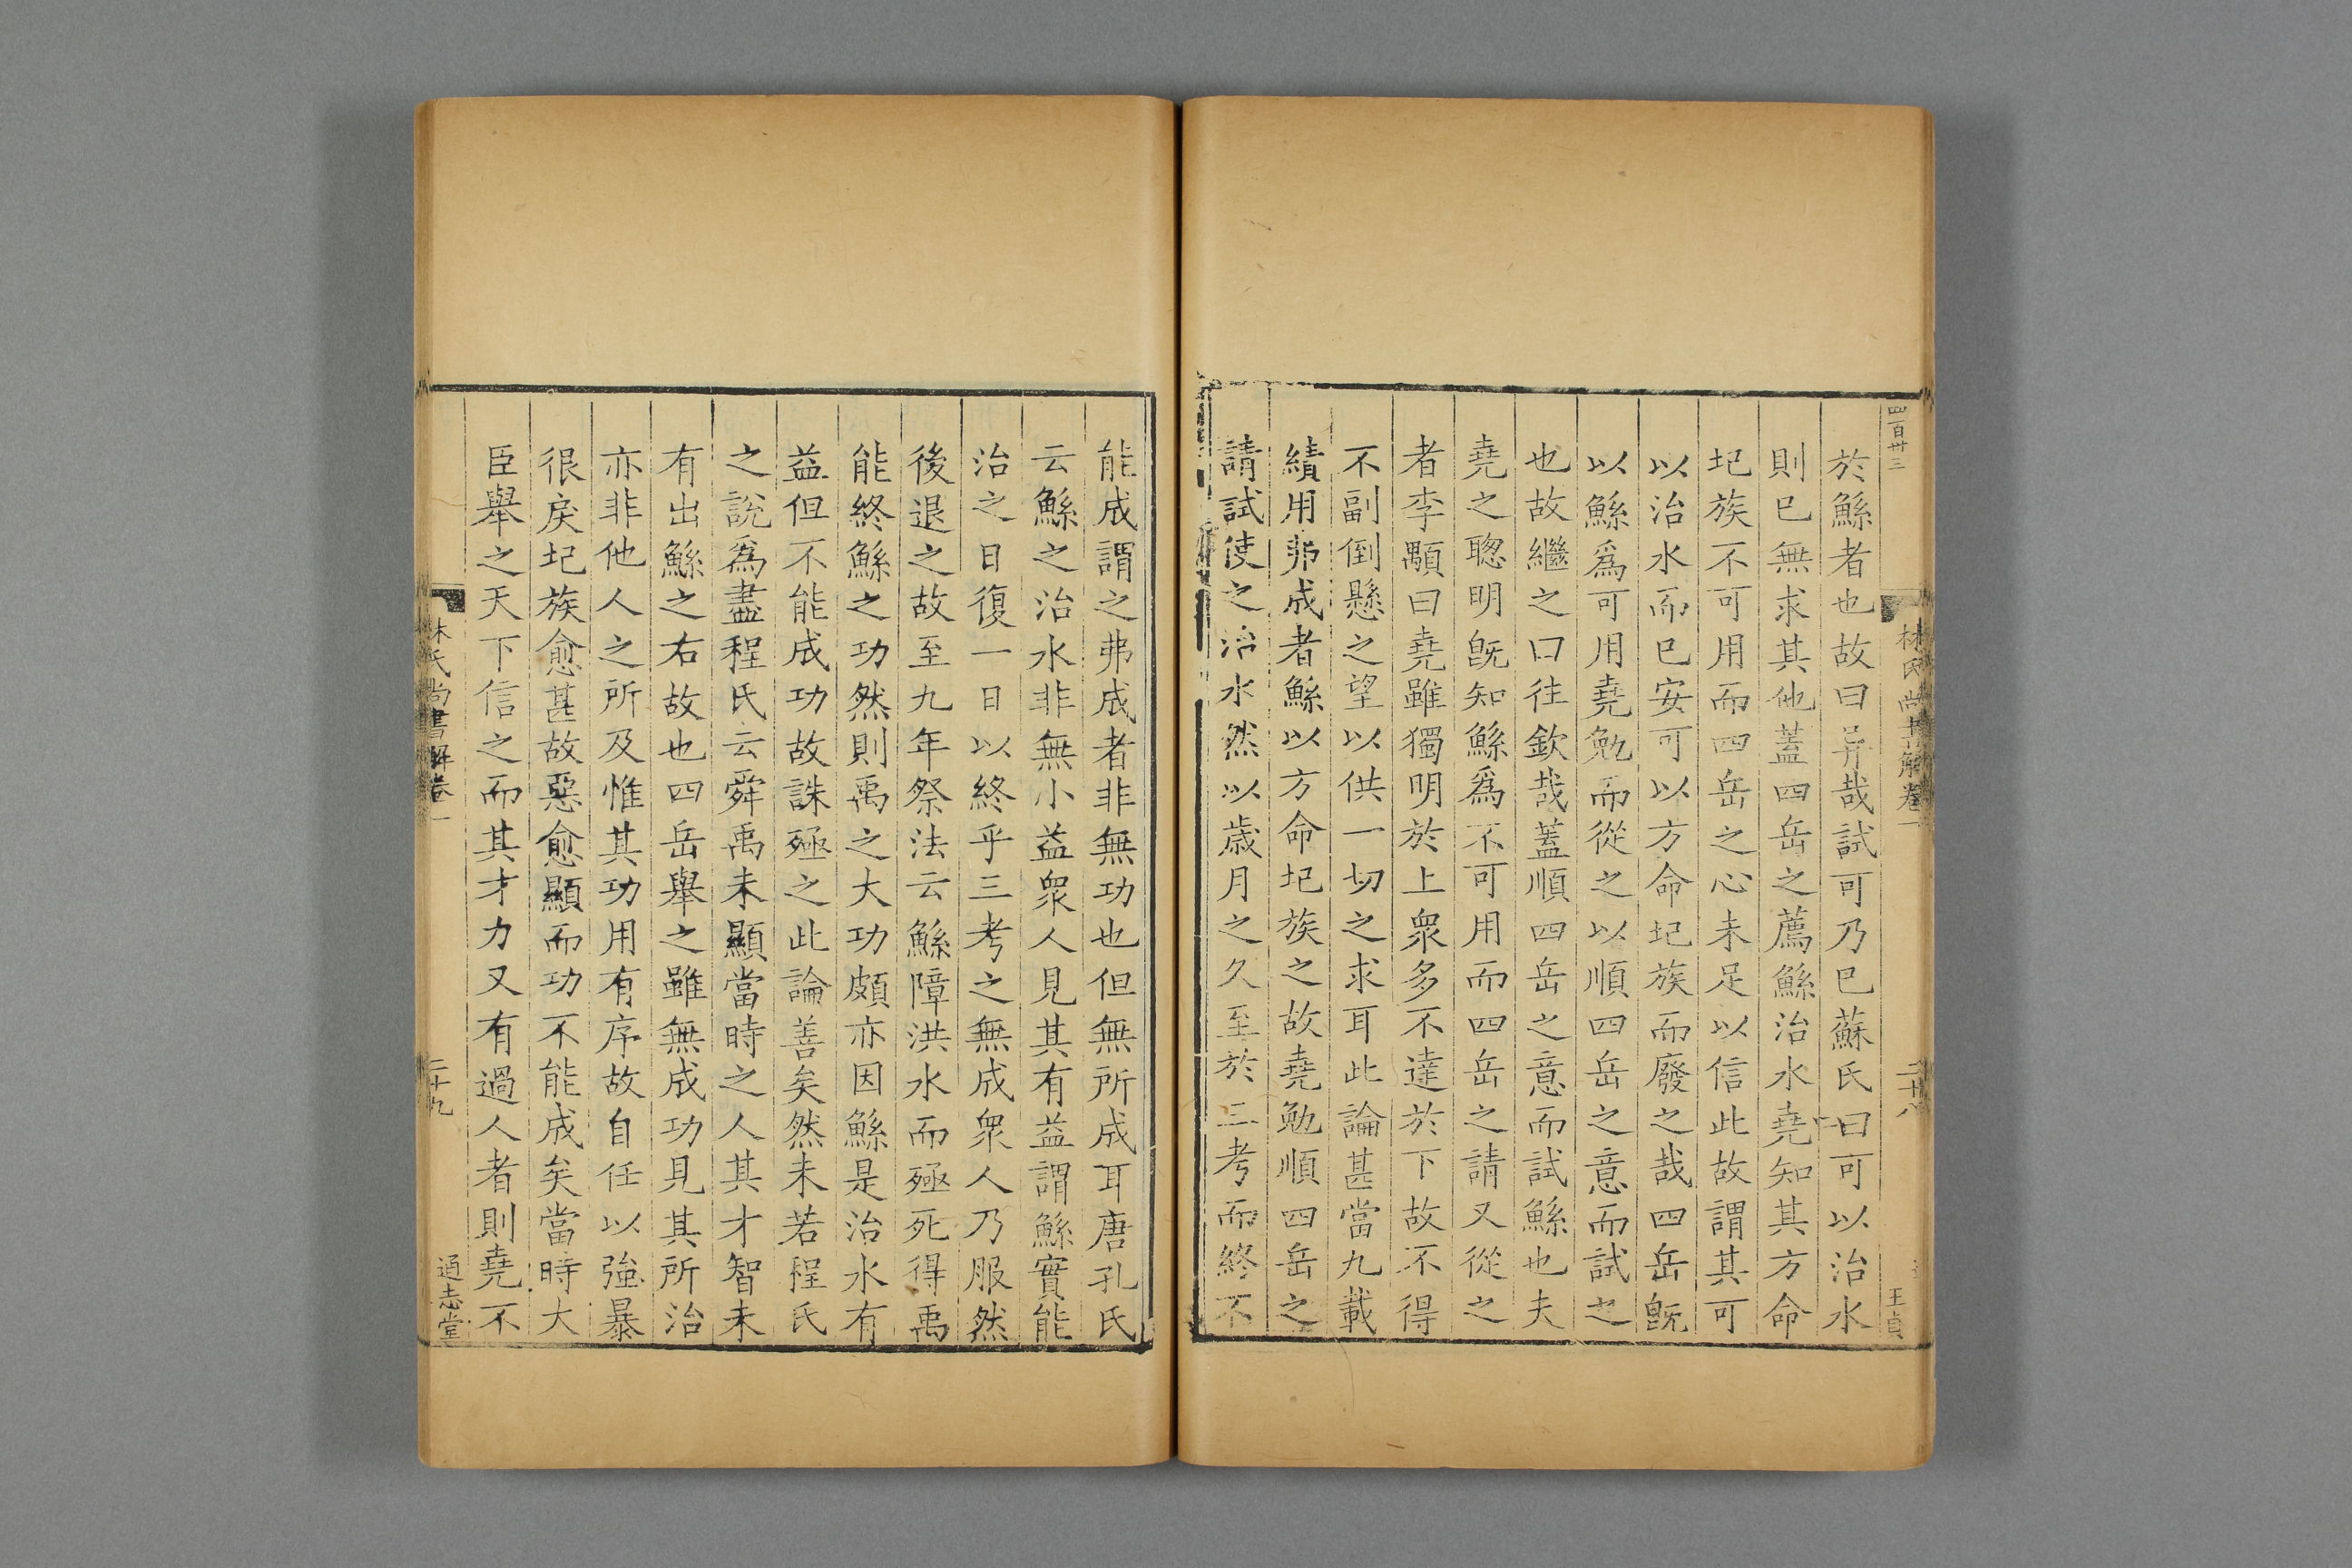 四百卅三
林氏尚書解卷一
二十八
王貞
於鯀者也故曰异哉試可乃巳蘇氏曰可以治水
則巳無求其他蓋四岳之薦鯀治水堯知其方命
圯族不可用而四岳之心未足以信此故謂其可
以治水而巳安可以方命圯族而廢之哉四岳旣
以鯀爲可用堯勉而從之以順四岳之意而試之
也故繼之曰往欽哉蓋順四岳之意而試鯀也夫
堯之聦明旣知鯀爲不可用而四岳之請又從之
者李顒曰堯雖獨明於上衆多不達於下故不得
不副倒懸之望以供一切之求耳此論甚當九載
績用弗成者鯀以方命圯族之故堯勉順四岳之
請試使之治水然以歳月之久至於三考而終不
能成謂之弗成者非無功也但無所成耳唐孔氏
云鯀之治水非無小益衆人見其有益謂鯀實能
治之日復一日以終乎三考之無成衆人乃服然
後退之故至九年祭法云鯀障洪水而殛死得禹
能終鯀之功然則禹之大功頗亦因鯀是治水有
益但不能成功故誅殛之此論善矣然未若程氏
之說爲盡程氏云舜禹未顯當時之人其才智未
有出鯀之右故也四岳舉之雖無成功見其所治
亦非他人之所及惟其功用有序故自任以強暴
很戾圯族愈甚故惡愈顯而功不能成矣當時大
臣舉之天下信之而其才力又有過人者則堯不
林氏尚書解卷一
二十九
通志堂